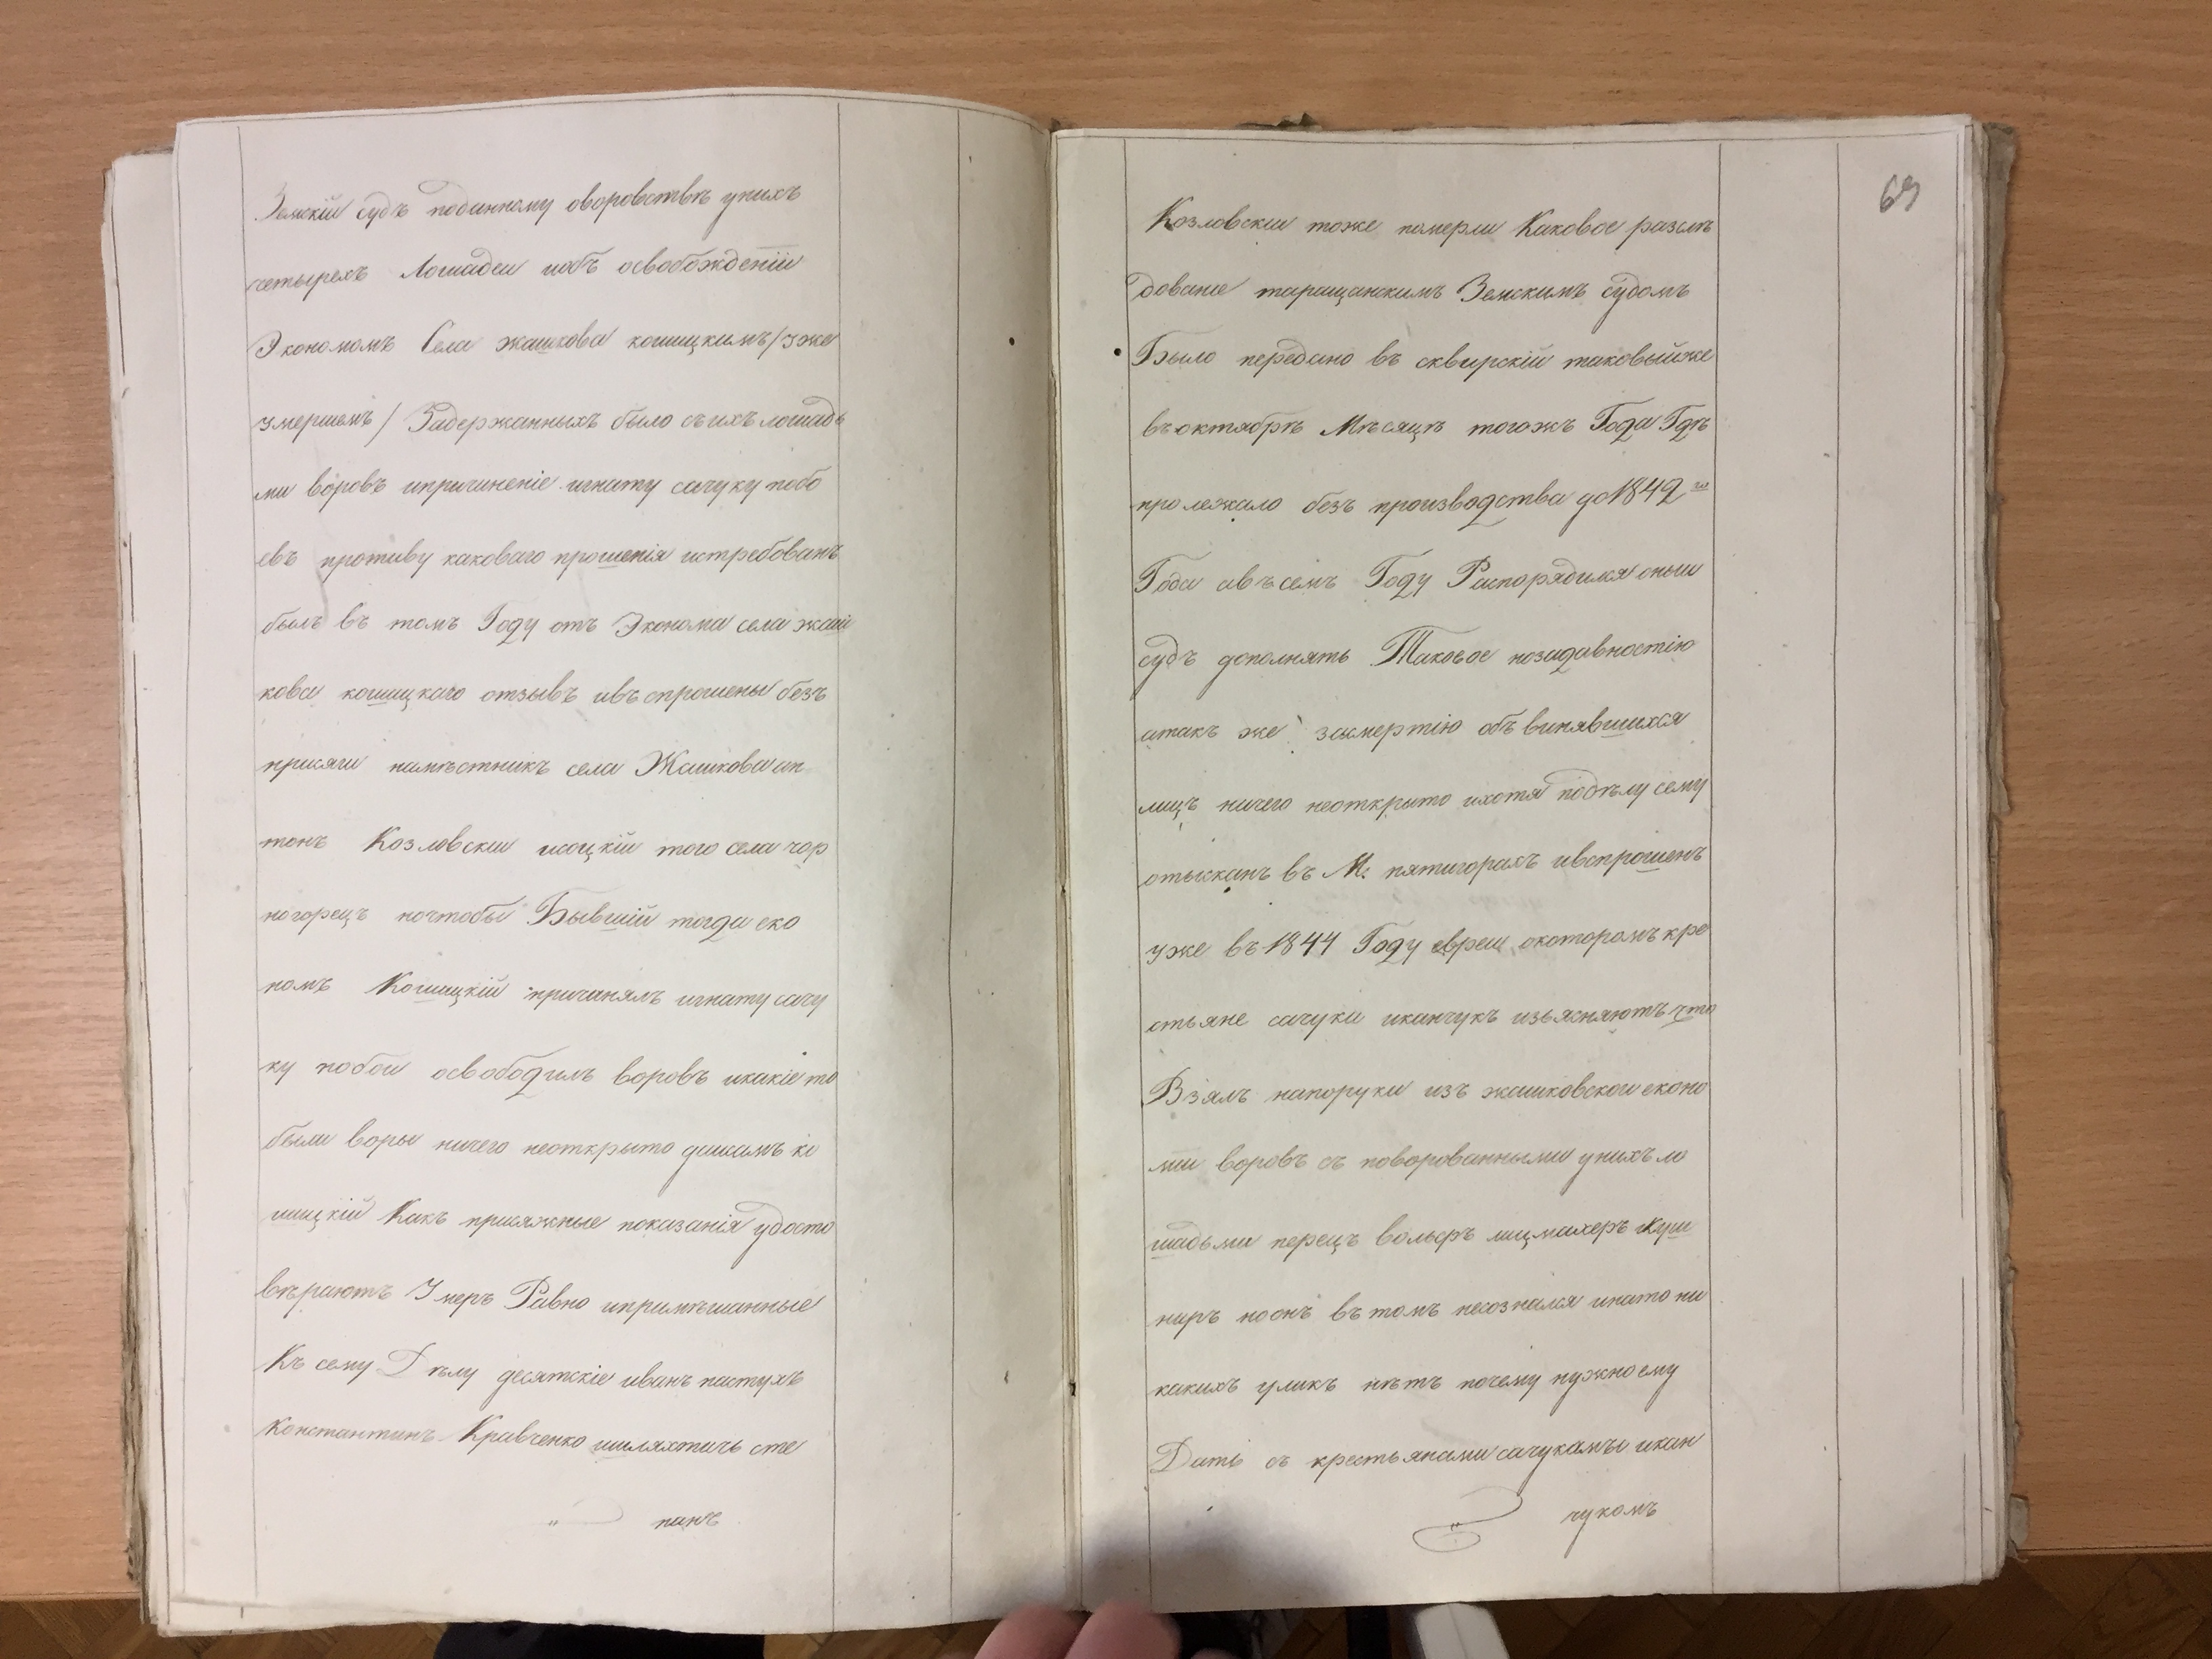 Земскій судъ поданному оворовствѣ унихъ
четырехъ Лошадеи иобъ освобожденіи
Экономомъ Села жашкова кошицкимъ /уже
умершемъ/ Задержанныхъ было съихъ лошадь
ми воровъ ипричиненіе игнату сачуку побо
евъ противу каковаго прошенія истребованъ
былъ въ томъ Году отъ Эконома села жаш
кова кошицкаго отзывъ ивъспрошены безъ
присяги намѣстникъ села Жашкова ан
тонъ Козловски исоцкій того села чор
ногорецъ ночтобы Бывшій тогда еко
номъ Кошицкій причинялъ игнату сачу
ку побои освободилъ воровъ икакіе то
были воры ничего неоткрыто ко
шицкій Какъ присяжные показанія удосто
вѣраютъ Умеръ Равно иприкѣшанные
Къ сему Дѣлу десятскіе иванъ пастухъ
Константинъ Кравченко шляхтичъ сте
панъ
69
Козловски тоже померли Каковое разслѣ
дованіе таращанскимъ Земскимъ судомъ
Было передано въ сквирскій таковыйже
въоктябрѣ Мѣсяцѣ тогожъ Года Гдѣ
пролежало безъ производства до1842го
Года авъсемъ Году Распорядился оныи
судъ дополнять Таковое нозадавностію
атакъ же засмертію объвинявшихся
лицъ ничего неоткрыто ихотя подѣлу сему
отысканъ въ М. пятигорахъ ивспрошенъ
уже въ1844 Году евреи окоторомъ кре
стьяне сачуки иканчукъ изъясняютъ что
Взялъ напоруки изъ жашковскои еконо
міи воровъ съ поворованными унихъ ло
шадьми перецъ вольфъ лицмахеръ Куш
ниръ ноонъ въ томъ несознался инато ни
какихъ уликъ нѣтъ почему нужноему
Дать съ крестьянами сачукамы икан
чукомъ